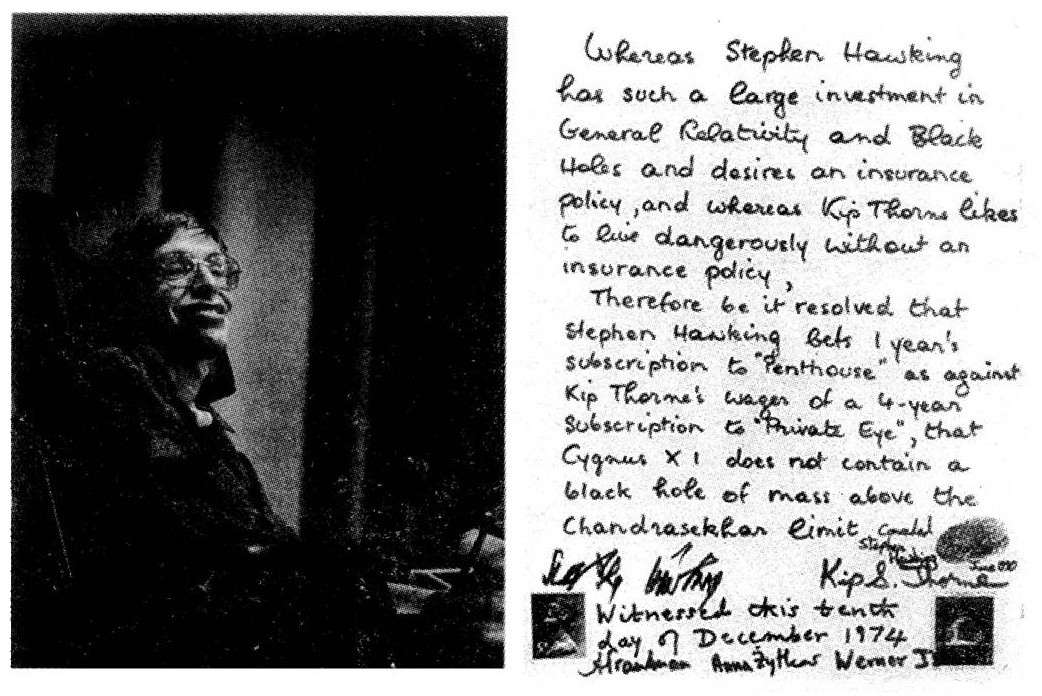 Whereas Stephen Hawking
has such a large investment in
General Relativity and Black
Holes and desires an insurance
policy, and whereas Kip Thorne likes
to live dangerously without an
insurance policy,
Therefore be it resolved that
Stephen Hawking bets 1 year's
subscription to "Penthouse" as against
Kip Thorne's wager of a 4-year
subscription to "Private Eye", that
Cygnus X 1 does not contain a
black hole of mass above the
Chandrasekhar limit
Conceded
Stephen
Hawking
June
Kip S. Thorne
Witnessed this tenth
day of December 1974
Anna Żytkow Werner